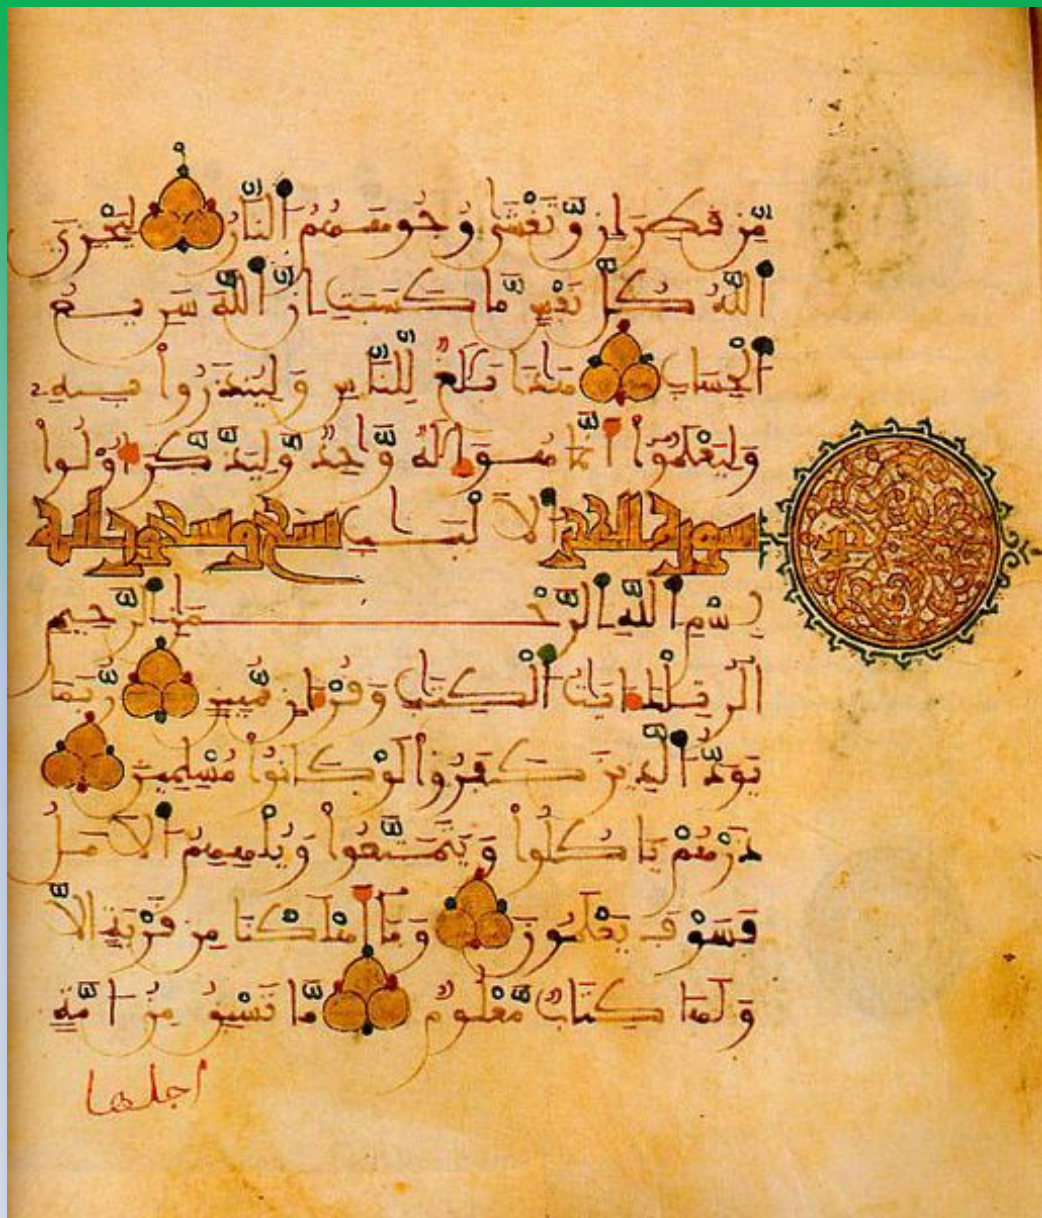 مِّن قَطِرَانٍ وَّتَغْشَىٰ وُجُوهَهُمُ النَّارُ لِيَجْزِيَ
اللَّهُ كُلَّ نَفْسٍ مَّا كَسَبَتِ انَّ اللَّهَ سَرِيعُ
الْحِسَابِ هَٰذَا بَلَٰغٌ لِّلنَّاسِ وَلِيُنذَرُواْ بِهِ
وَلِيَعْلَمُواْ أَنَّمَا هُوَ إِلَٰهٌ وَّاحِدٌ وَّلِيَذَّكَّرَ أُوْلُواْ
سورة الحجر الالْبَٰبِ تسع وتسعون اية
بِسْمِ اللَّهِ الرَّحْمَٰنِ الرَّحِيمِ
الٓر تِلْكَ ءَايَٰتُ الْكِتَٰبِ وَقُرْءَانٍ مُّبِينٍ رُّبَمَا
يَوَدُّ الَّذِينَ كَفَرُواْ لَوْ كَانُواْ مُسْلِمِينَ
ذَرْهُمْ يَاكُلُواْ وَيَتَمَتَّعُواْ وَيُلْهِهِمُ الامَلُ
فَسَوْفَ يَعْلَمُونَ وَمَآ أَهْلَكْنَا مِن قَرْيَةٍ الاَّ
وَلَهَا كِتَابٌ مَّعْلُومٌ مَّا تَسْبِقُ مِنُ امَّةٍ
اجلها